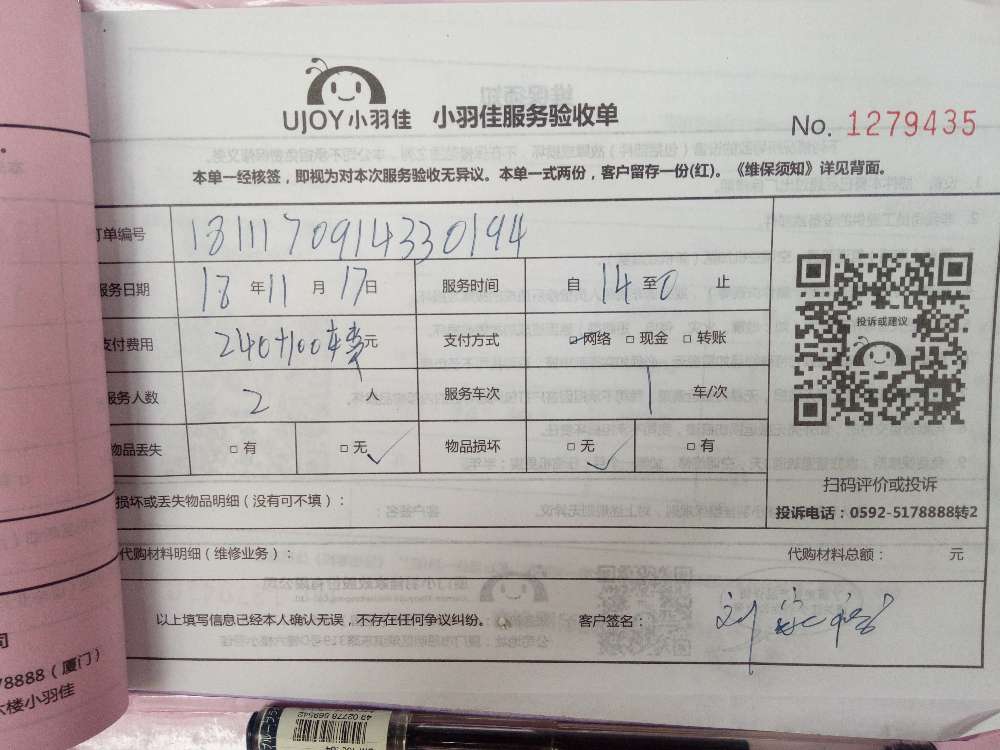 UJOY小羽佳 小羽佳服务验收单
No. 1279435
本单一经核签，即视为对本次服务验收无异议。本单一式两份，客户留存一份(红)。《维保须知》详见背面。
订单编号 1811170914330194
服务日期 18 年 11 月 17 日 服务时间 自 14 至 0 止
支付费用 240+100车费元 支付方式 □网络 □现金 □转账
服务人数 2 人 服务车次 1 车/次
物品丢失 □有 □无 ✓ 物品损坏 □无 ✓ □有
投诉或建议
扫码评价或投诉
投诉电话：0592-5178888转2
损坏或丢失物品明细（没有可不填）：
代购材料明细（维修业务）： 代购材料总额： 元
以上填写信息已经本人确认无误，不存在任何争议纠纷。 客户签名： 刘
司
78888（厦门）
六楼小羽佳
49 02778 569542